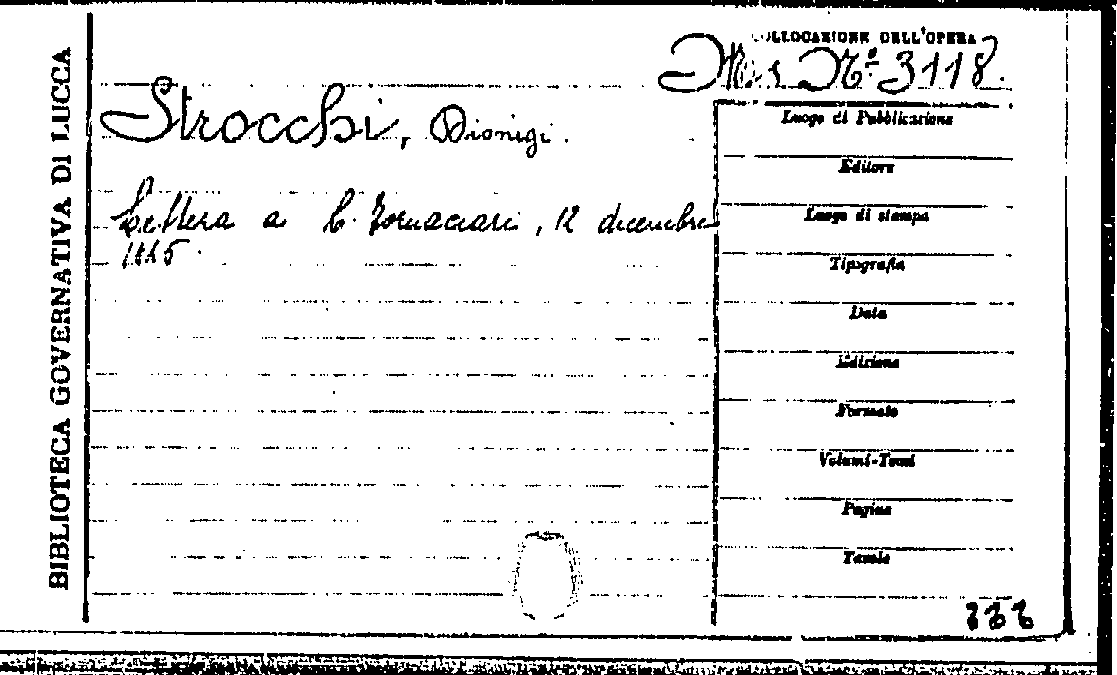 BIBLIOTECA GOVERNATIVA DI LUCCA
COLLOCAZIONE DELL'OPERA
Ms. Nº 3118.
Strocchi, Dionigi.
Lettera a C. Fornaciari, 12 dicembre
Luogo di Pubblicazione
Editore
Luogo di stampa
Tipografia
Data
Edizione
Formato
Volumi-Tomi
Pagine
Tavole